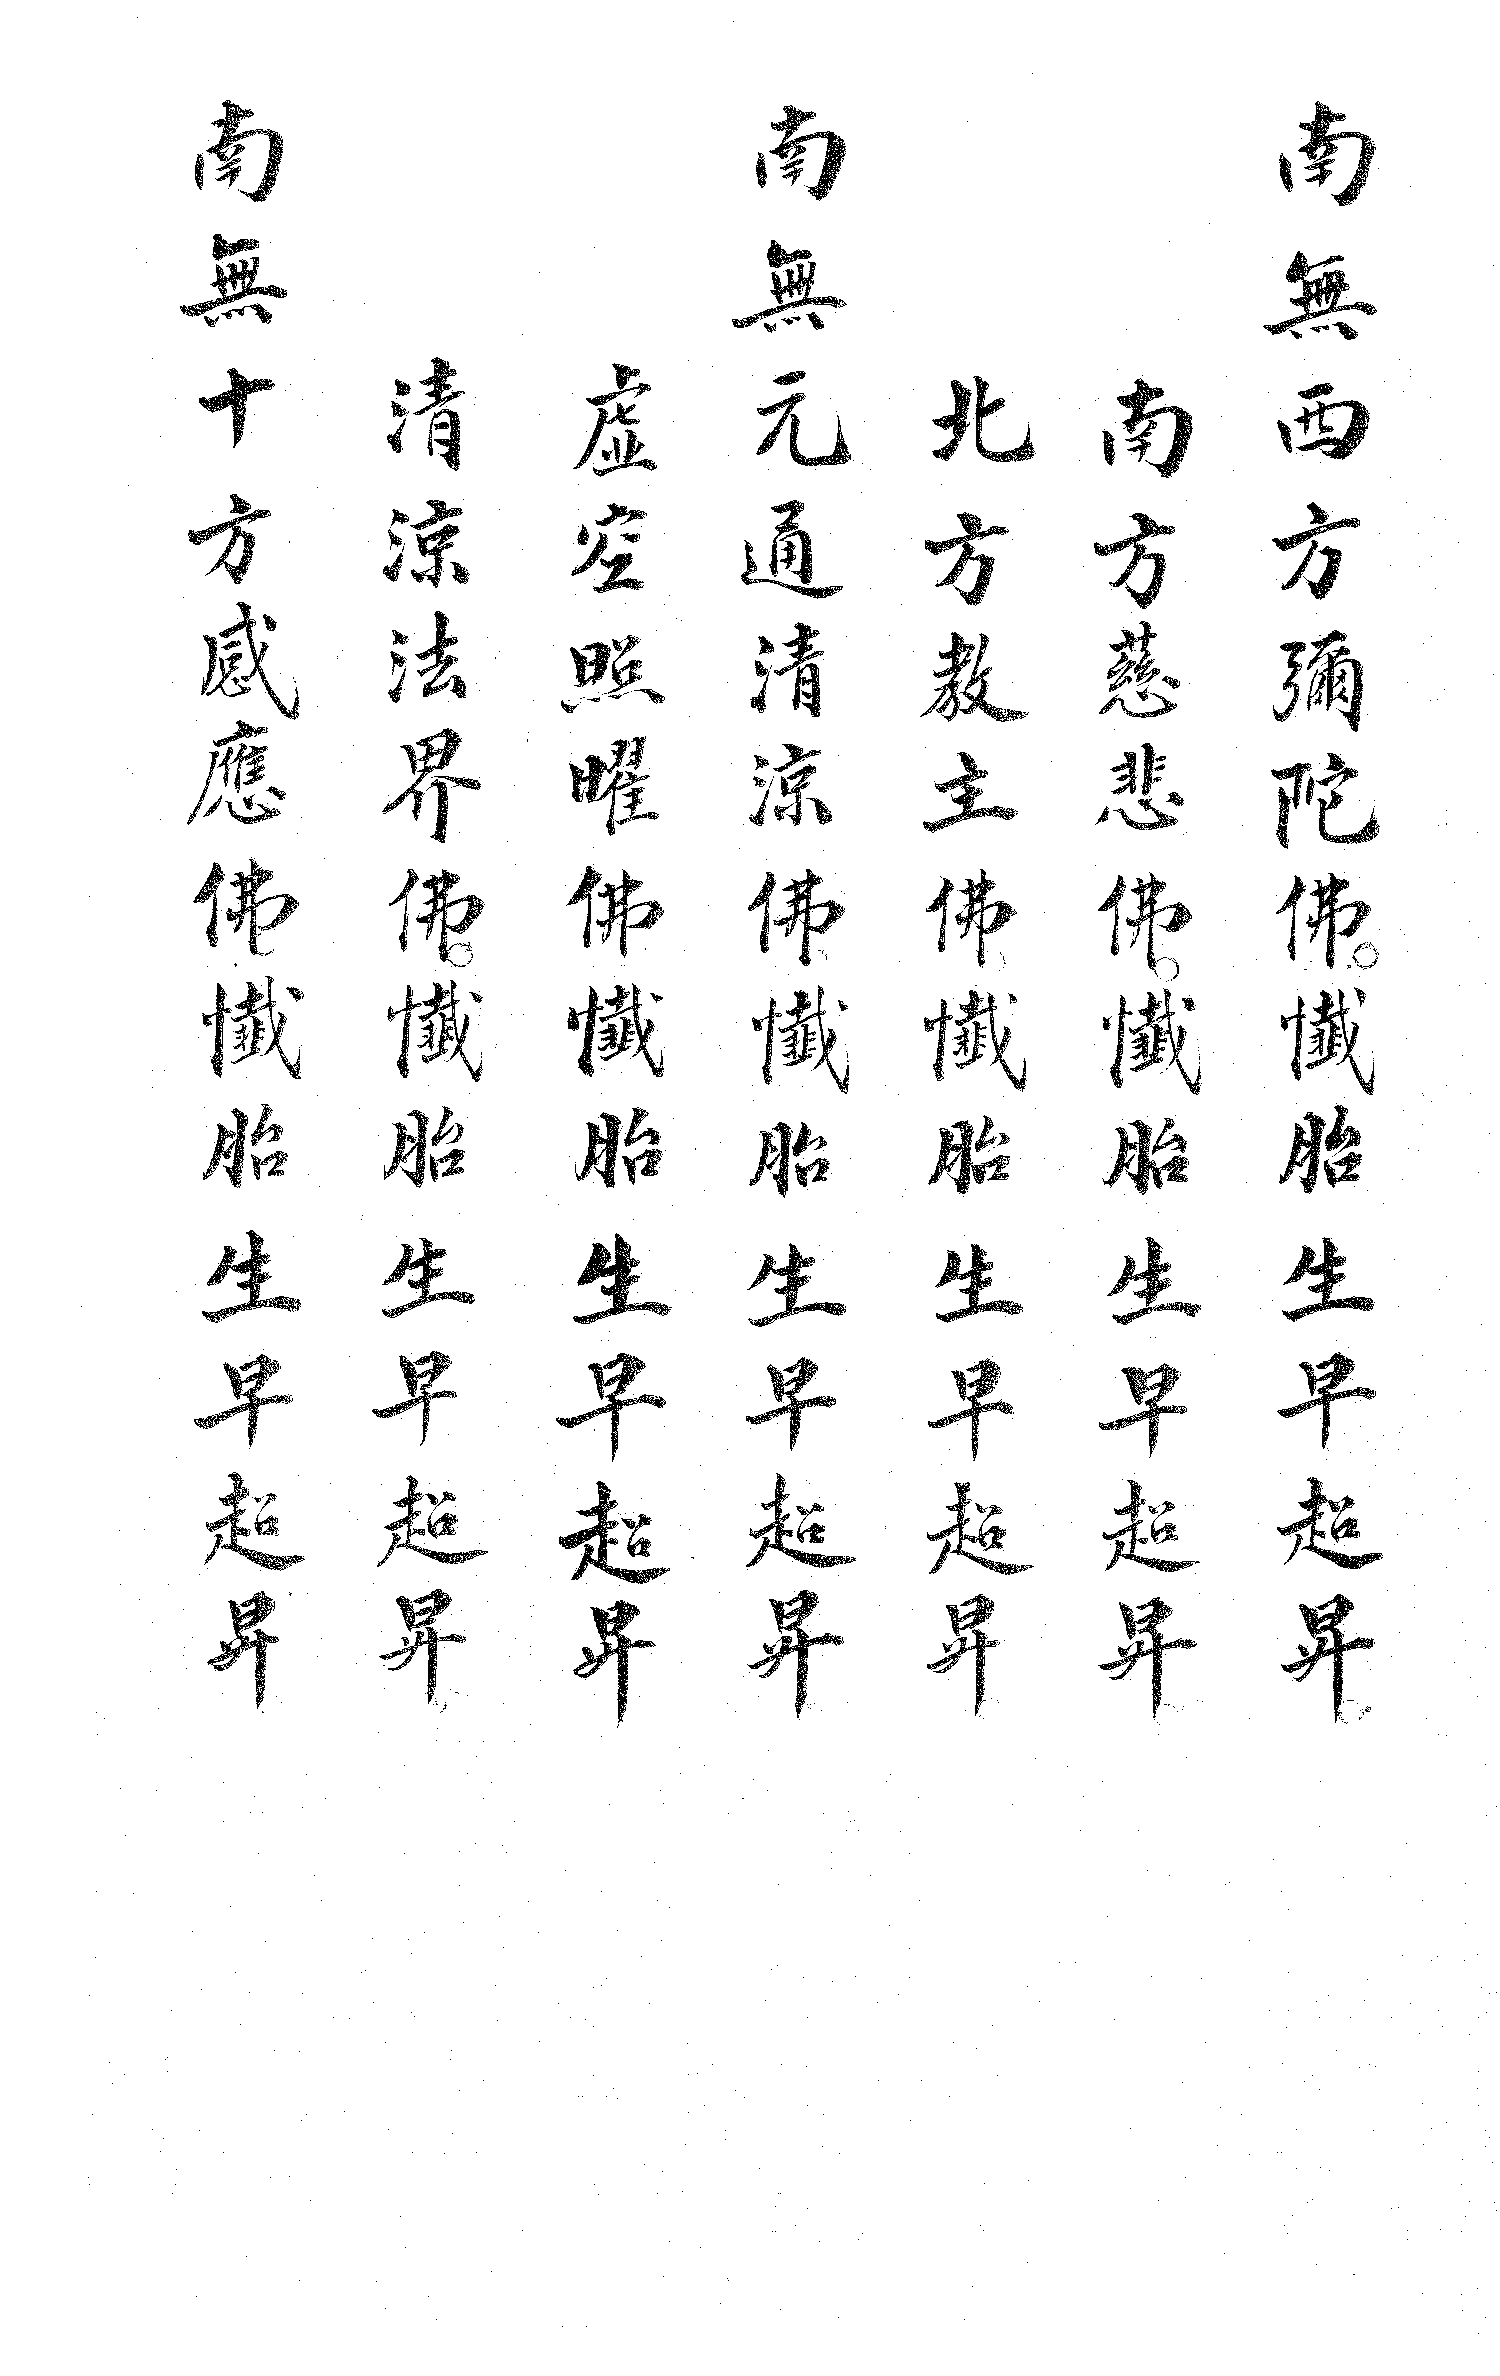 南無西方彌陀佛。懺胎生早超昇。
南方慈悲佛。懺胎生早超昇
北方教主佛懺胎生早超昇
南無元通清涼佛懺胎生早超昇
虛空照曜佛懺胎生早超昇
清涼法界佛。懺胎生早超昇
南無十方感應佛懺胎生早超昇